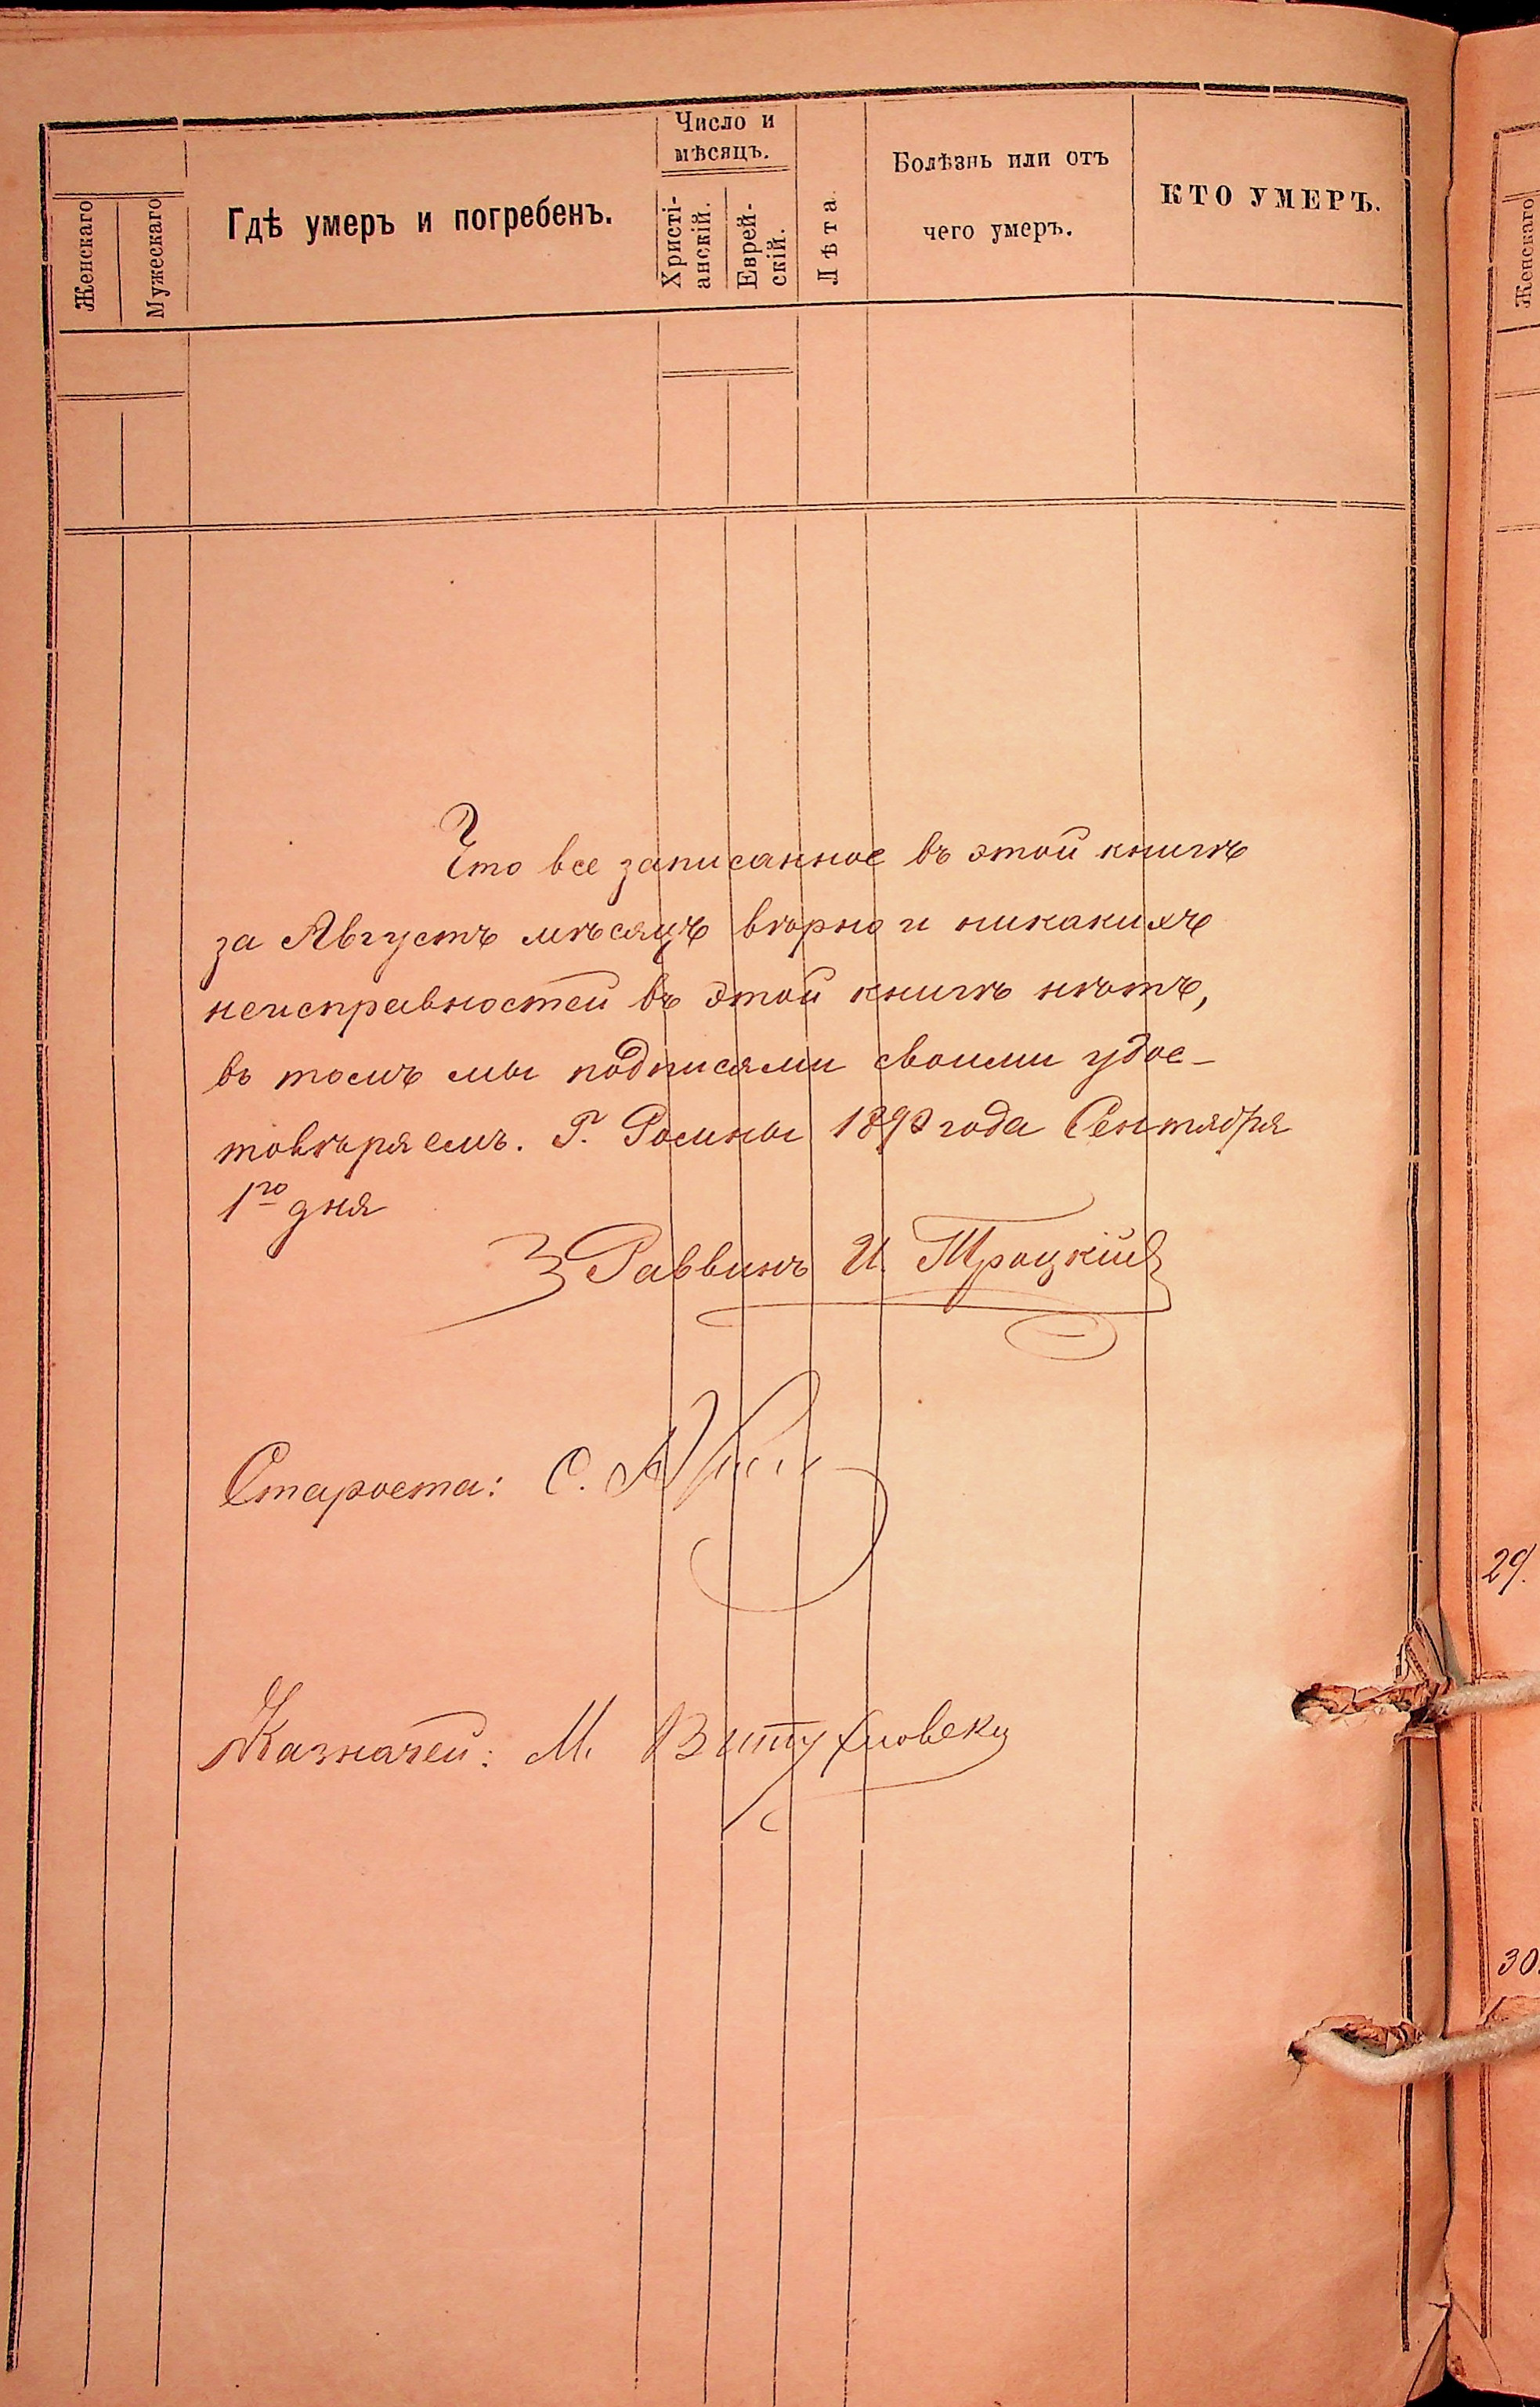 Женскаго
Мужескаго
Гдѣ умеръ и погребенъ.
Число и
мѣсяцъ.
Христі-
анскій.
Еврей-
скій.
Лѣта.
Болѣзнь или отъ
чего умеръ.
КТО УМЕРЪ.
Что все записанное въ этой книгѣ
за Августъ мѣсяцъ вѣрно и никакихъ
неисправностей въ этой книгѣ нѣтъ,
въ томъ мы подписями своими удос-
товѣряемъ. Г. Ромны 1890 года Сентября
1го дня
Раввинъ И. Троцкій
Староста: С.
Казначей: М.
Женскаго
29.
30.